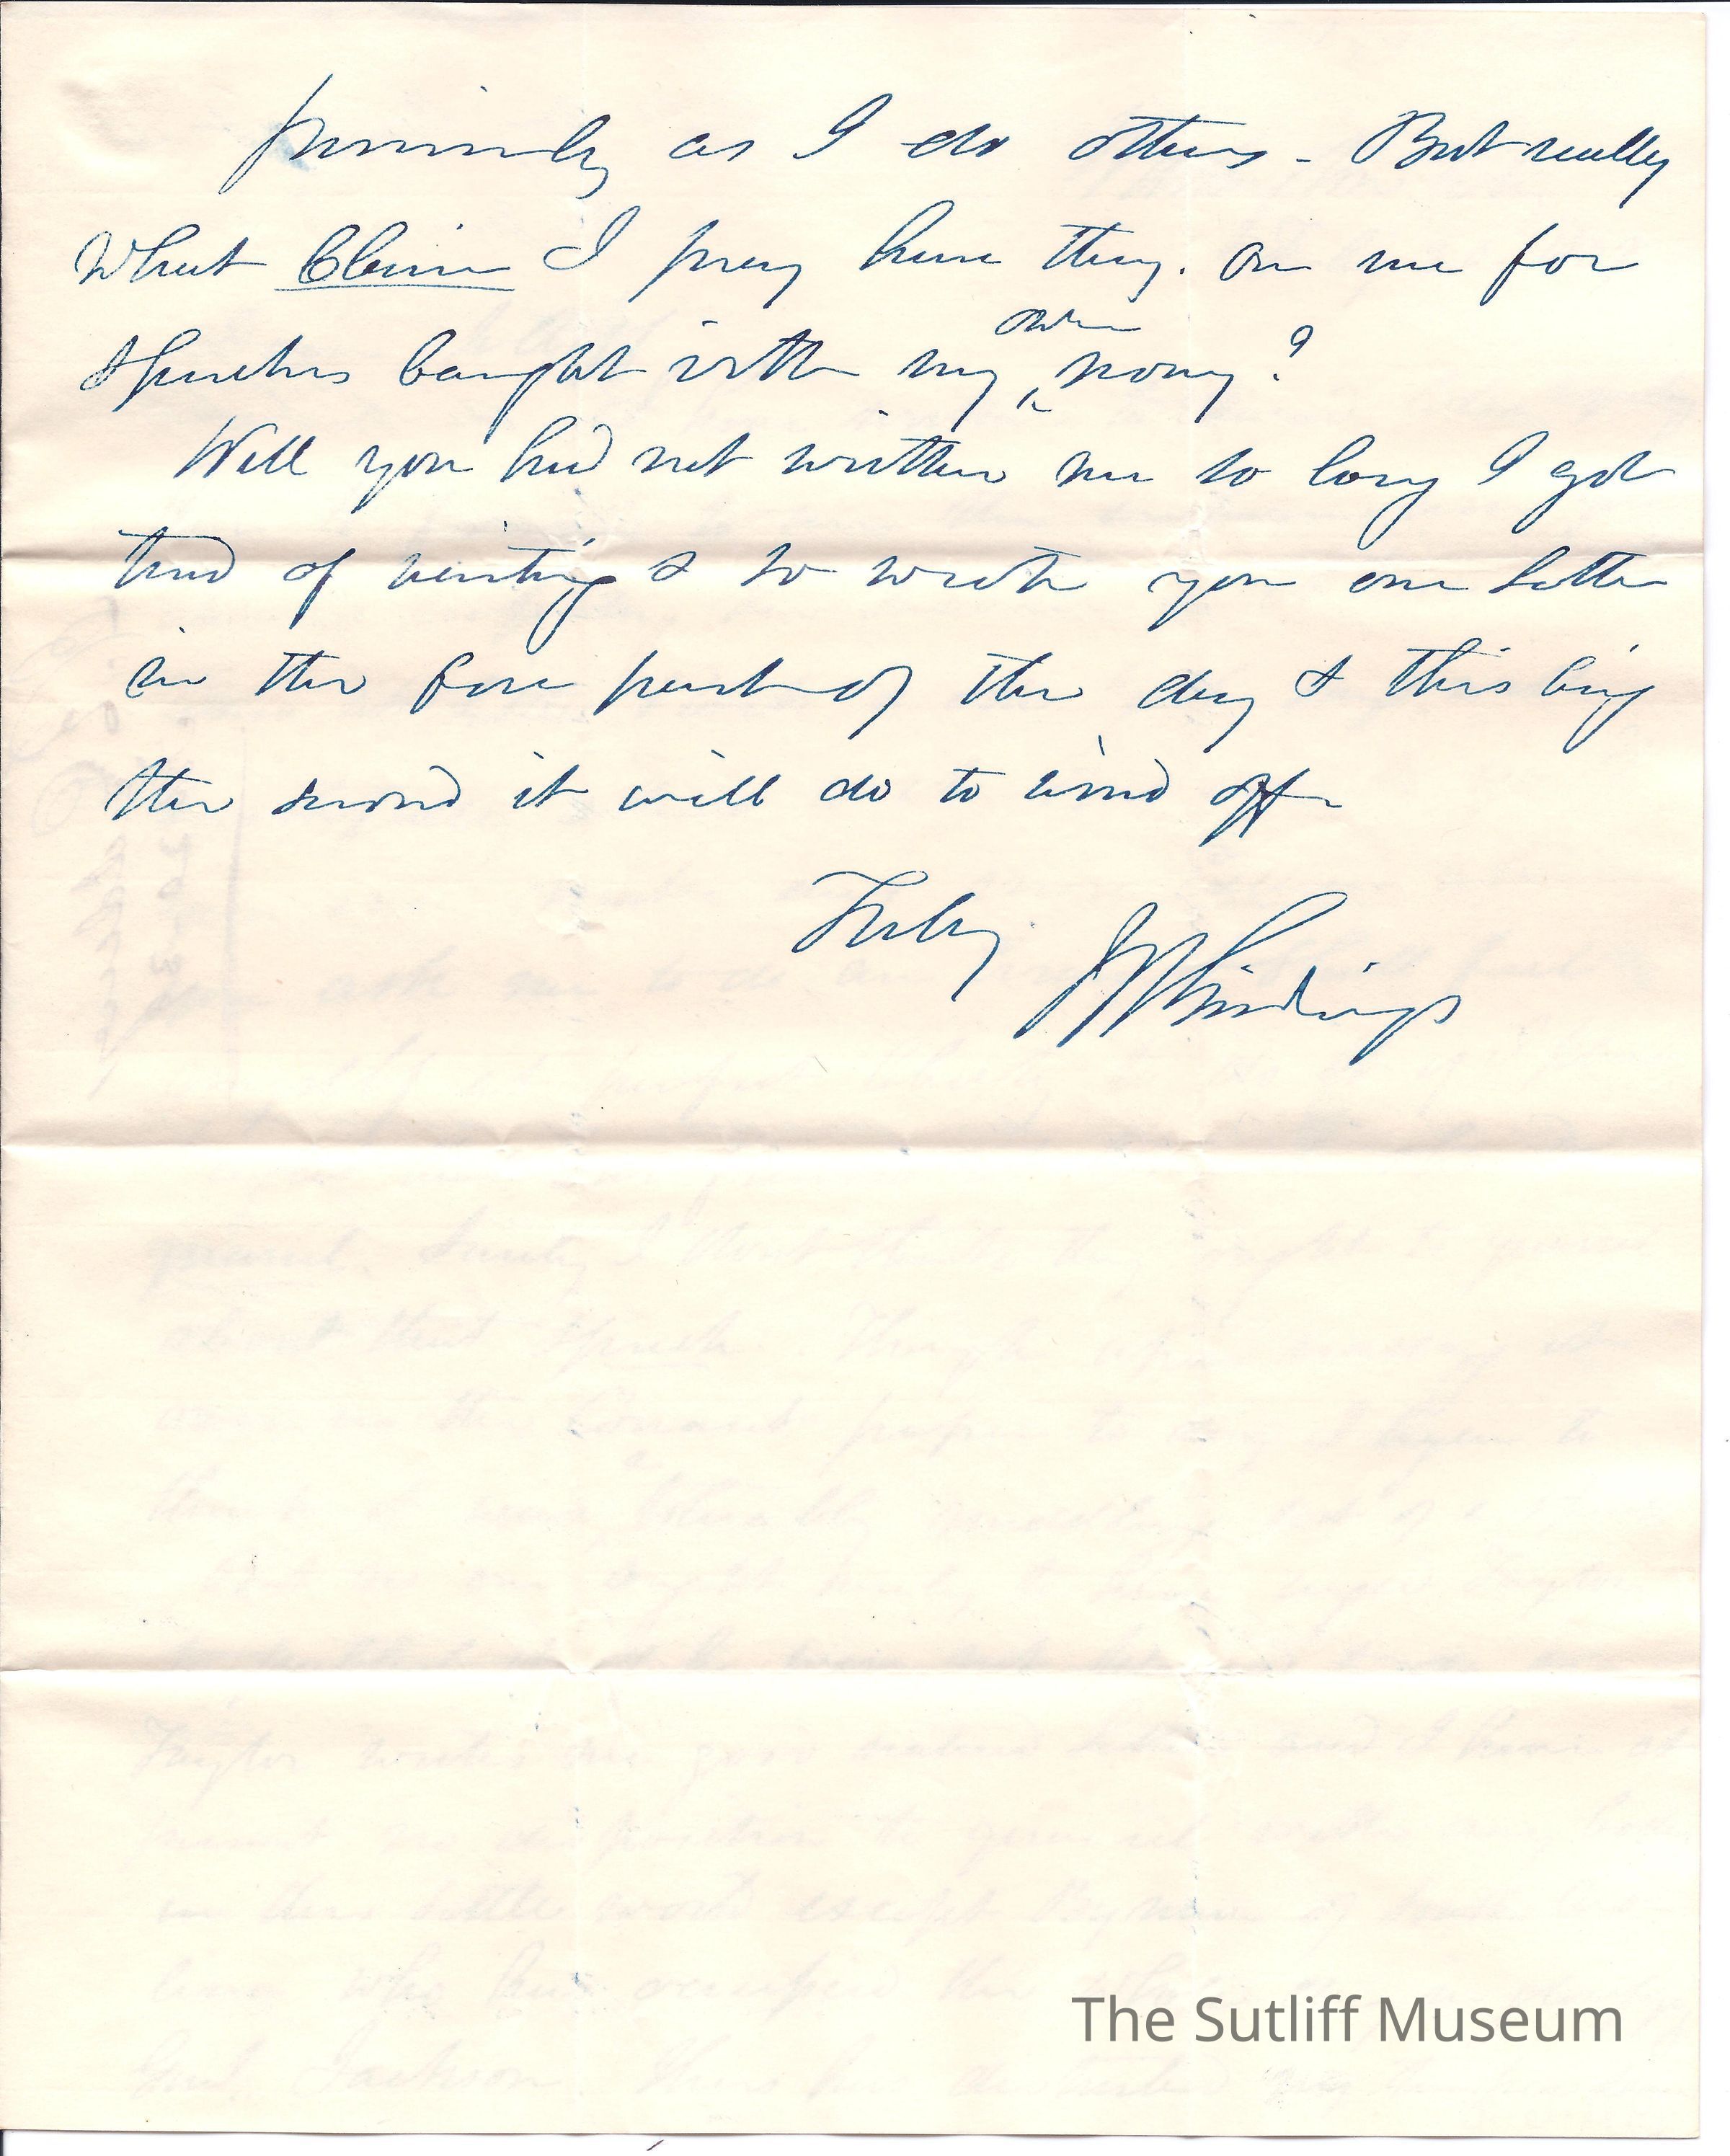 as I do others - But really
What Claim I pray have they. on me for
Speeches bought with my own money?
Well you had not written me so long I got
tired of waiting & so wrote you one letter
in the fore part of the day & this being
the second it will do to wind off
Truly J R Giddings
The Sutliff Museum